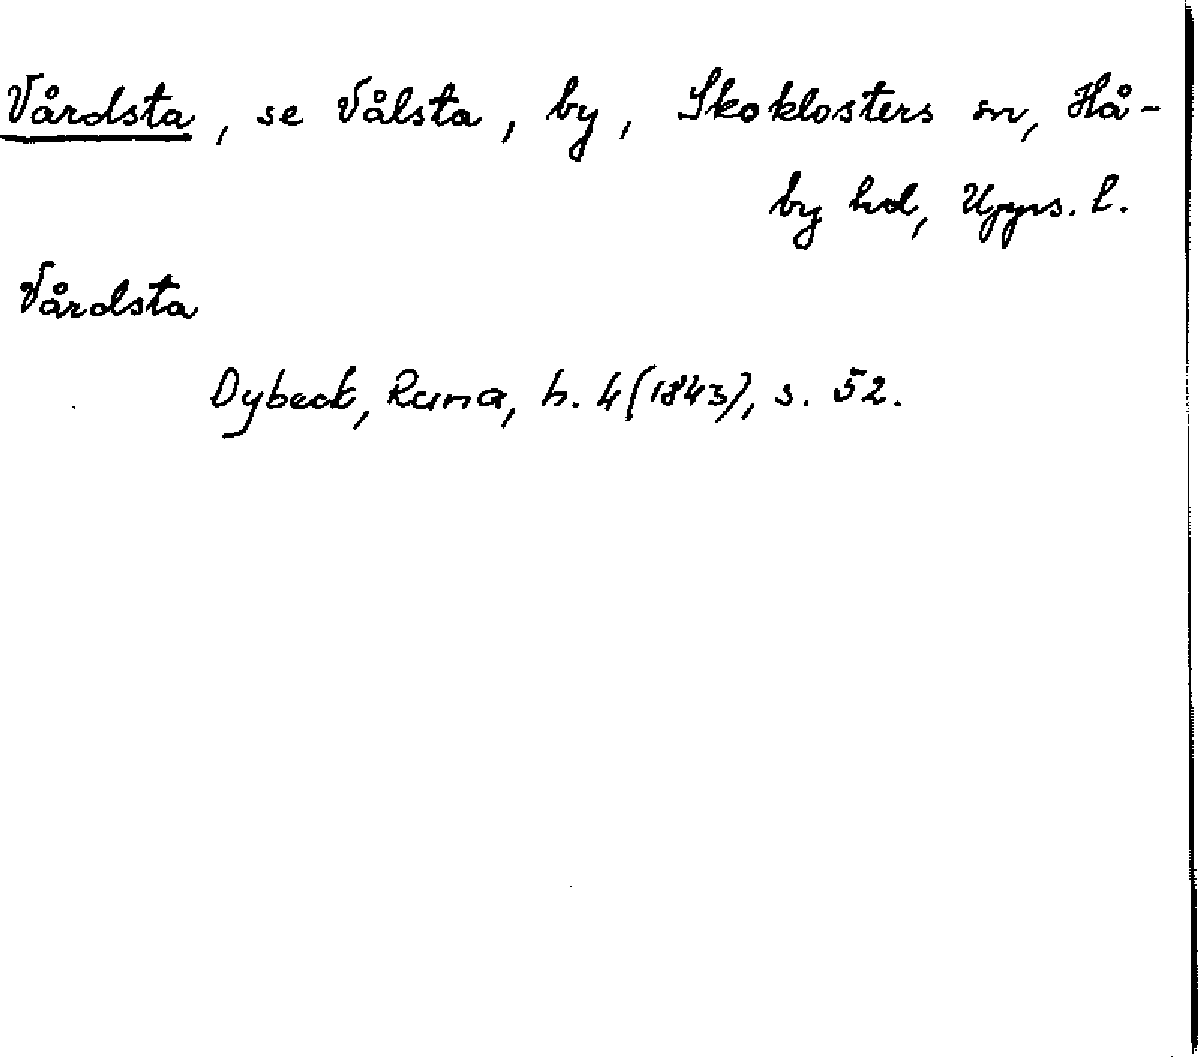 Vårdsta, se Vålsta, by, Skoklosters sn, Hå-
by hd, Upps. l.
Vårdsta
Dybeck, Runa, h. 4 (1843), s. 52.